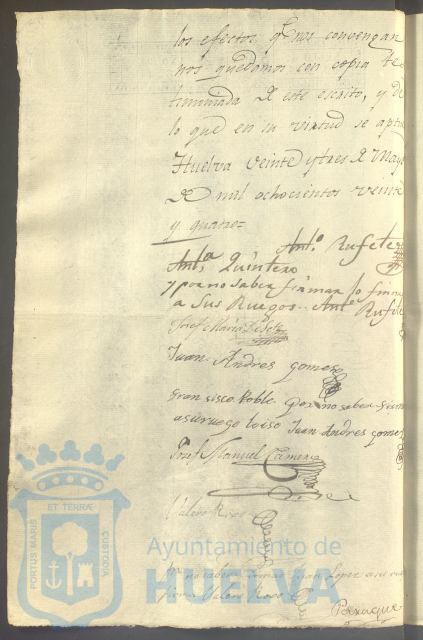 los efectos q.e nos convengan
nos quedamos con copia te
timuniada de este escrito, y de
lo que en su virtud se
Huelva veinte y tres de Mayo
de mil ochocientos veinte
y quatro=
Ant.o Rufete
Ant.a Quintero
y por no saber firmar lo firma
a Sus Ruegos. Ant.o Rufete
Josef Maria
Juan Andres gomez
Fran sisco Roble por no saber firm
asuruego loiso Juan Andres gomez
Josef Manuel
Valero Roxo
Por no saber firmar Juan Lopez a su
firma Valero Roxo
PORTUS MARIS ET TERRÆ CUSTODIA
Ayuntamiento de
HUELVA